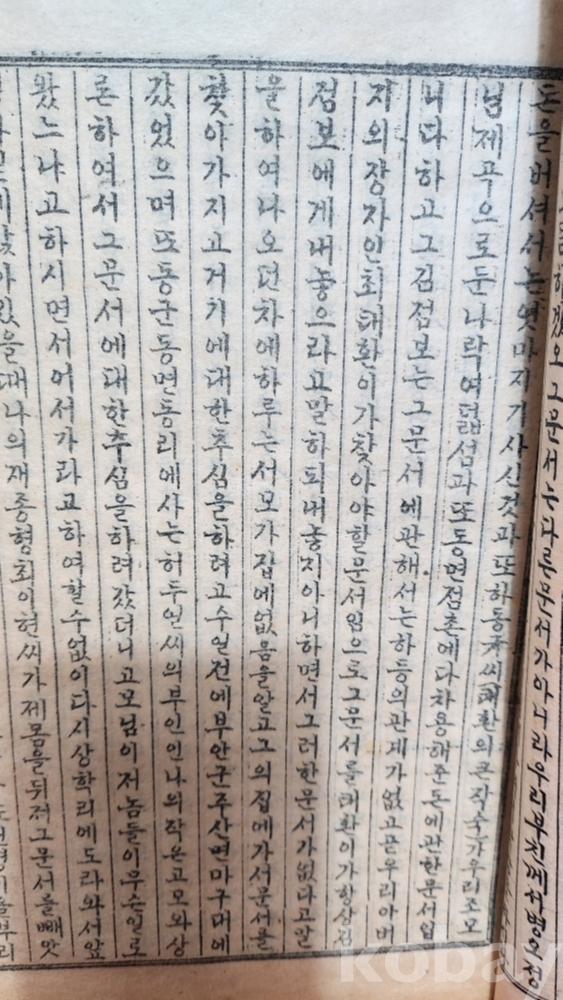 그문서는다른문서가아니라우리부친께서병오정
돈을버셔서논엿마지기사신것과또하동댁씨태환의큰작숙가우리조모
님제곡으로둔나락여덟섬과또동면점촌에다차용해준돈에관한문서입
니다하고그김점보는그문서에관해서는하등의관계가없고곧우리아버
지의장자인최태환이가찾아야할문서임으로그문서를태환이가항상김
점보에게내놓으라고말하되내놓지아니하면서그러한문서가없다고말
을하여나오던차에하루는서모가집에없음을알고그의집에가서문서를
찾아가지고거기에대한추심을하려고수일전에부안군주산면마구대에
갔었으며또동군동면동리에사는허두일씨의부인인나의작은고모와상
론하여서그문서에대한추심을하려갔더니고모님이저놈들이무슨일로
왔느냐고하시면서어서가라고하여할수없이다시상학리에도라와서앞
있을때나의재종형최이현씨가제몸을뒤저그문서를빼앗